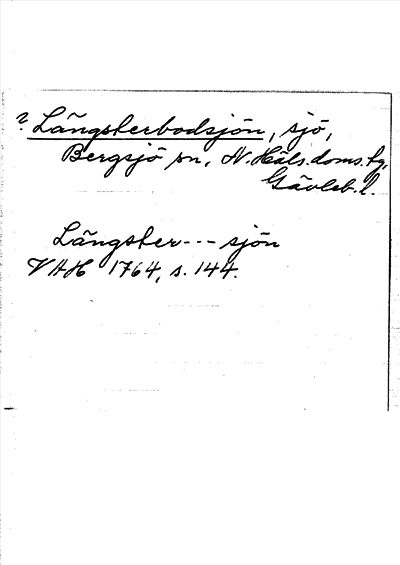 ? Långsterbodsjön, sjö,
Bergsjö sn, N. Häls. doms. tg,
Gävleb. l.
Långster--- sjön
VAH 1764, s. 144.